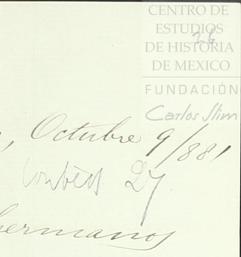 CENTRO DE
ESTUDIOS
DE HISTORIA
DE MEXICO
FUNDACIÓN
Carlos Slim
Octubre 9/881
27
hermanos